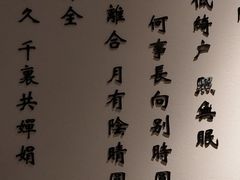 低綺户 照無眠
何事長向别時圓
離合 月有陰晴圓
全
久 千裏共嬋娟